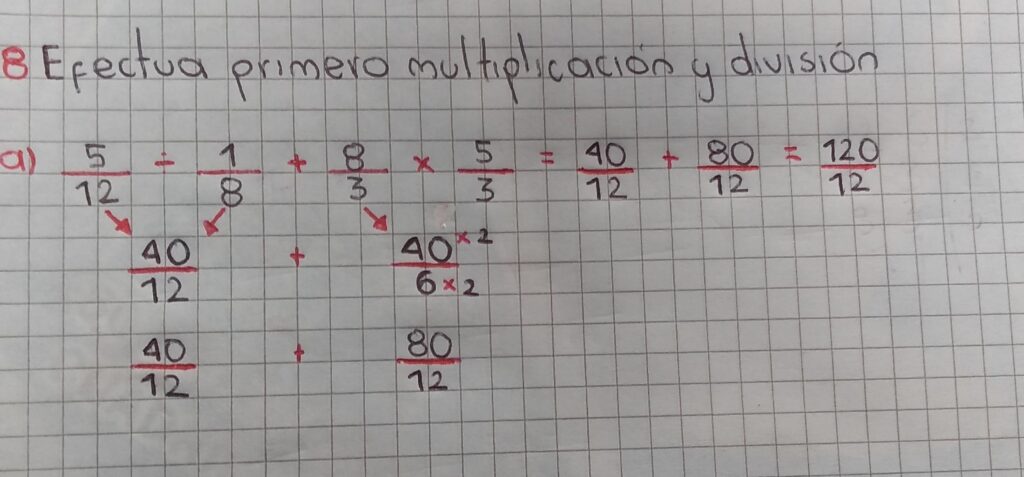 8 Efectua primero multiplicación y división
a) 5/12 ÷ 1/8 + 8/3 × 5/3 = 40/12 + 80/12 = 120/12
40/12 + 40×2/6×2
40/12 + 80/12